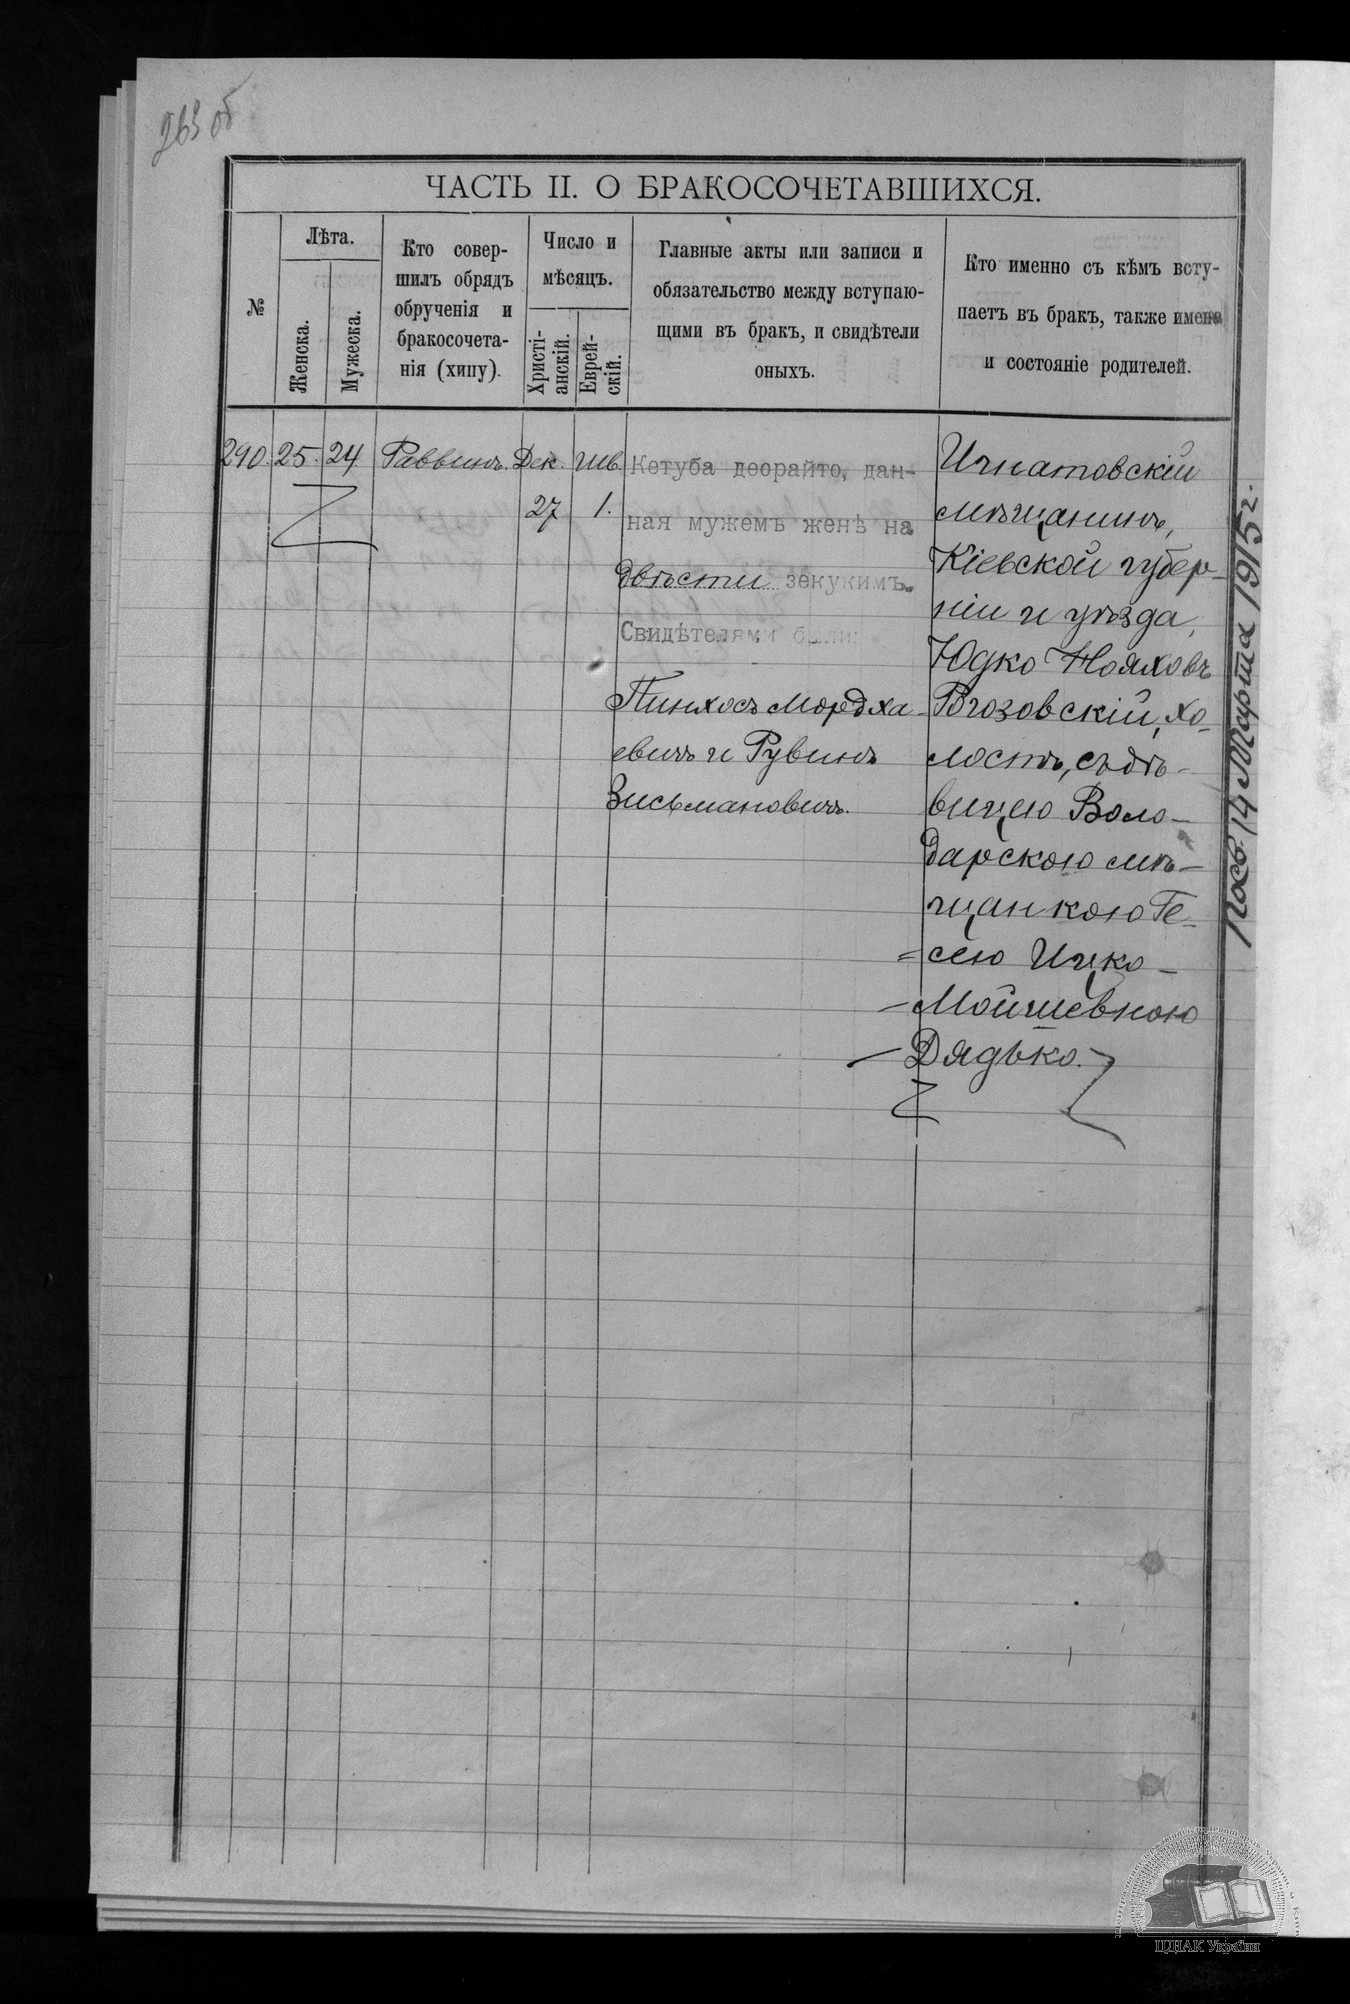 263 об
ЧАСТЬ II. О БРАКОСОЧЕТАВШИХСЯ.
№
Лѣта.
Женска.
Мужеска.
Кто совер-
шилъ обрядъ
обрученія и
бракосочета-
нія (хипу).
Число и
мѣсяцъ.
Христі-
анскій.
Еврей-
скій.
Главные акты или записи и
обязательство между вступаю-
щими въ бракъ, и свидѣтели
оныхъ.
Кто именно съ кѣмъ всту-
паетъ въ бракъ, также имена
и состояніе родителей.
290. 25. 24 Раввинъ. Дек. Шв.
27 1.
Кетуба деорайто, дан-
ная мужемъ женѣ на
двѣсти зекукимъ.
Свидѣтелями были:
Пинхосъ Мордха-
евичъ и Рувинъ
Зисьмановичъ.
Игнатовскій
мѣщанинъ,
Кіевской губер-
ніи и уѣзда,
Юдко Нояховъ
Рогозовскій, хо-
лостъ, съ дѣ-
вицею Воло-
дарскою мѣ-
щанкою Ге-
=сею Ицко-
-Мойшевною
-Дядько.
Посв. 14 Марта 1915 г.
ЦДІАК України